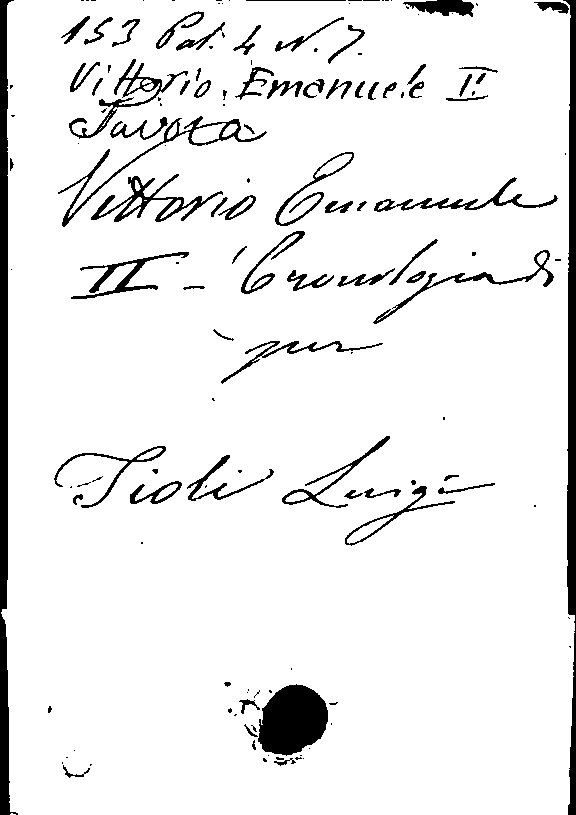 153 Pal. 4 N. 7.
Vittorio Emanuele II
Savoia
Vittorio Emanuele
II - Cronologia di
per
Tioli Luigi